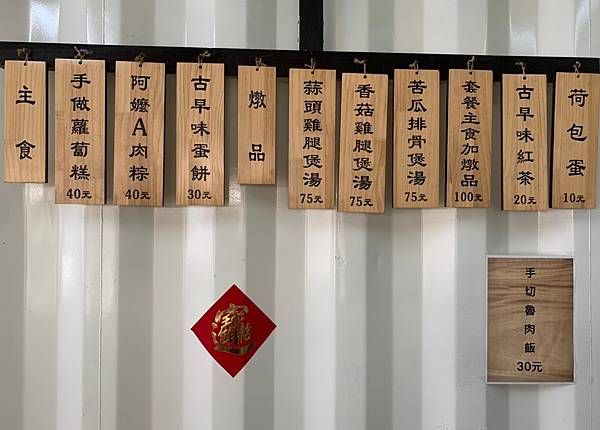 主食
手做蘿蔔糕
40元
阿嬤A肉粽
40元
古早味蛋餅
30元
燉品
蒜頭雞腿煲湯
75元
香菇雞腿煲湯
75元
苦瓜排骨煲湯
75元
套餐主食加燉品
100元
古早味紅茶
20元
荷包蛋
10元
手切魯肉飯
30元
招財進寶